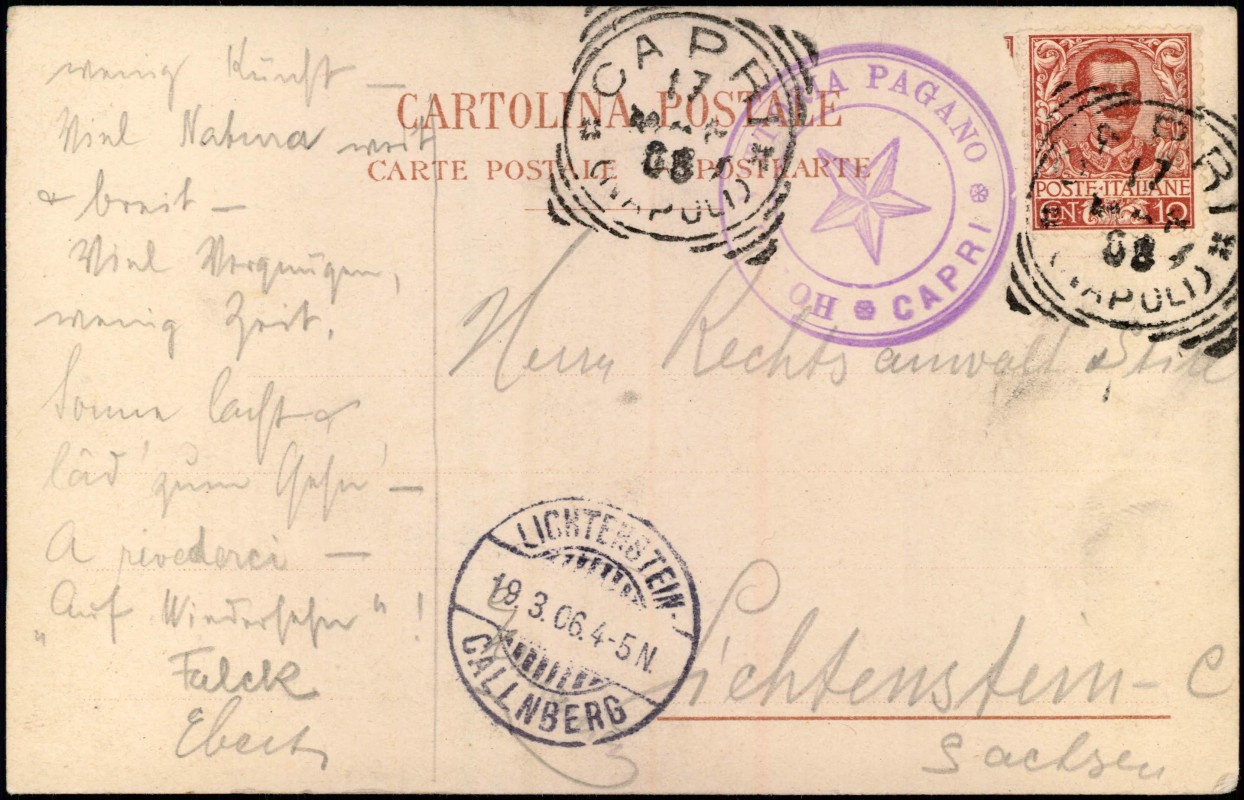 wenig Kunst —
Viel Natura weit
& breit —
Viel Vergnügen,
wenig Zeit,
Sonne lacht &
läd' zum Gehn' —
A rivederci —
„Auf Wiedersehn"!
Falck
Ebert
CARTOLINA POSTALE
CARTE POSTALE POSTKARTE
CAPRI
17
08
(NAPOLI)
PAGANO
CAPRI
POSTE·ITALIANE
CENT. 10
CAPRI
17
08
(NAPOLI)
Herrn Rechtsanwalt
LICHTENSTEIN-
19.3.06.4-5N.
CALLNBERG
Lichtenstein-C
Sachsen